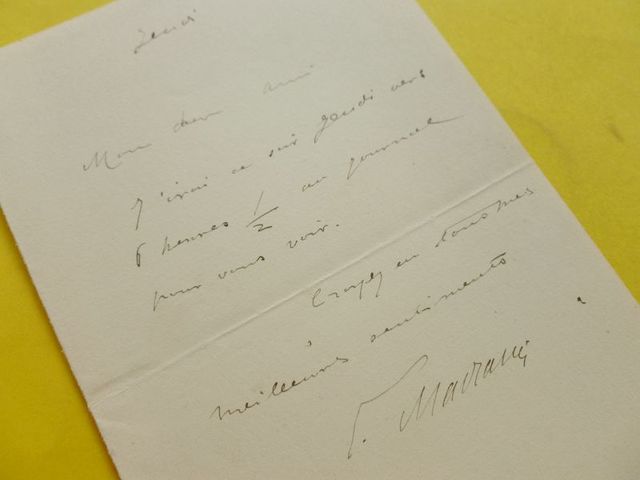 Jeudi
Mon cher ami
J'irai ce soir Jeudi vers
6 heures 1/2 au journal
pour vous voir.
Croyez en tous mes
meilleurs sentiments